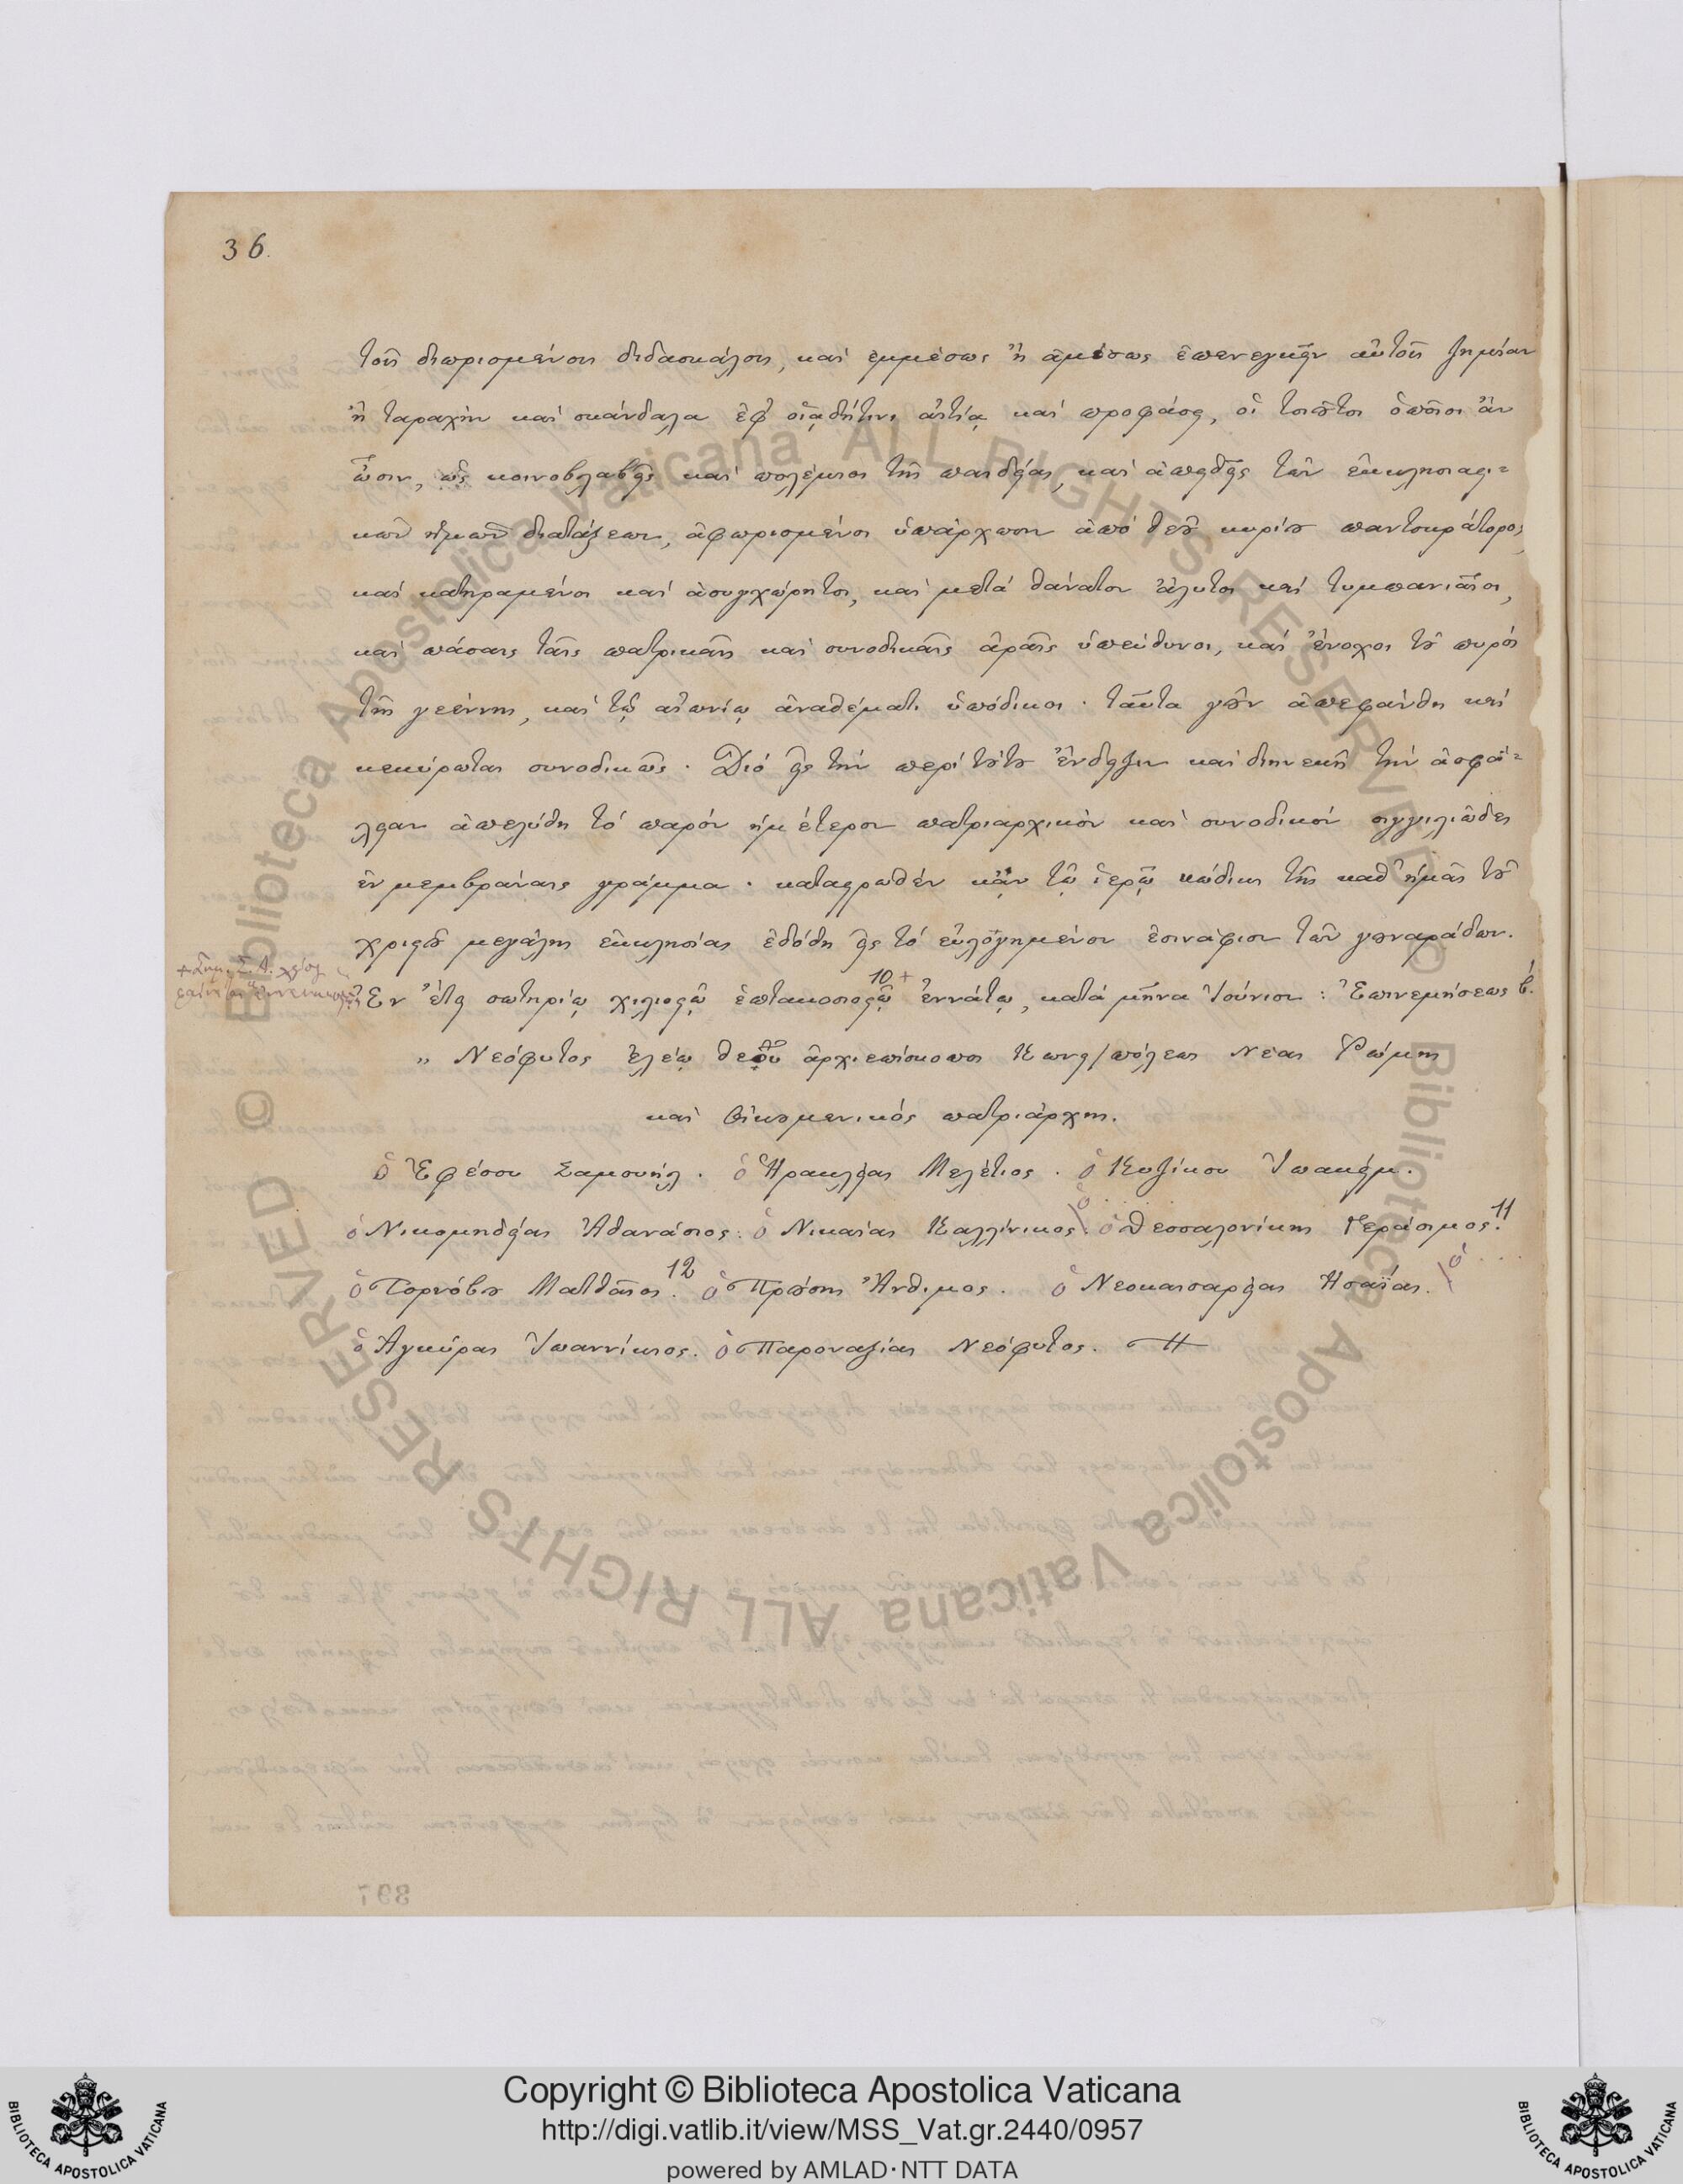 36.
τοῖς διωρισμένοις διδασκάλοις, καὶ ἐμμέσως ἢ ἀμέσως ἐπενεγκεῖν αὐτοῖς ζημίαν
ἢ ταραχὴν καὶ σκάνδαλα ἐφ' οἱᾳδήτινι αἰτίᾳ καὶ προφάσει, οἱ τοιοῦτοι ὁποῖοι ἂν
ὦσιν, ὡς κοινοβλαβεῖς καὶ πολέμιοι τῆς παιδείας, καὶ ἀπειθεῖς τῶν ἐκκλησιαστι=
κῶν ἡμῶν διατάξεων, ἀφωρισμένοι ὑπάρχωσιν ἀπὸ θεοῦ κυρίου παντοκράτορος,
καὶ κατηραμένοι καὶ ἀσυγχώρητοι, καὶ μετὰ θάνατον ἄλυτοι καὶ τυμπανιαῖοι,
καὶ πάσαις ταῖς πατρικαῖς καὶ συνοδικαῖς ἀραῖς ὑπεύθυνοι, καὶ ἔνοχοι τοῦ πυρὸς
τῆς γεέννης, καὶ τῷ αἰωνίῳ ἀναθέματι ὑπόδικοι. ταῦτα γοῦν ἀπεφάνθη καὶ
κεκύρωται συνοδικῶς. Διὸ εἰς τὴν περὶ τούτου ἔνδειξιν καὶ διηνεκῆ τὴν ἀσφά=
λειαν ἀπελύθη τὸ παρὸν ἡμέτερον πατριαρχικὸν καὶ συνοδικὸν σιγγιλιῶδες
ἐν μεμβράναις γράμμα. καταστρωθὲν κἂν τῷ ἱερῷ κώδικι τῆς καθ' ἡμᾶς τοῦ
χριστοῦ μεγάλης ἐκκλησίας ἐδόθη εἰς τὸ εὐλογημένον ἐσινάφιον τῶν γουναράδων.
Ἐν ἔτει σωτηρίῳ χιλιοστῷ ἑπτακοσιοστῷ 10+ ἐννάτῳ, κατὰ μῆνα Ἰούνιον: Ἐπινεμήσεως β.
„ Νεόφυτος ἐλέῳ θεοῦ ἀρχιεπίσκοπος Κωνς/πόλεως νέας Ῥώμης
καὶ οἰκουμενικὸς πατριάρχης.
ὁ Ἐφέσου Σαμουήλ. ὁ Ἡρακλείας Μελέτιος. ὁ Κυζίκου Ἰωακείμ.
ὁ Νικομηδείας Ἀθανάσιος. ὁ Νικαίας Καλλίνικος. ὁ Θεσσαλονίκης Γεράσιμος. 11
ὁ Τορνόβου Ματθαῖος. 12 ὁ Προύσης Ἄνθιμος. ὁ Νεοκαισαρείας Ἡσαΐας. ὁ ...
ὁ Ἀγκύρας Ἰωαννίκιος. ὁ Παροναξίας Νεόφυτος.
Copyright © Biblioteca Apostolica Vaticana
http://digi.vatlib.it/view/MSS_Vat.gr.2440/0957
powered by AMLAD·NTT DATA
BIBLIOTECA APOSTOLICA VATICANA
BIBLIOTECA APOSTOLICA VATICANA
© Biblioteca Apostolica Vaticana ALL RIGHTS RESERVED
© Biblioteca Apostolica Vaticana ALL RIGHTS RESERVED